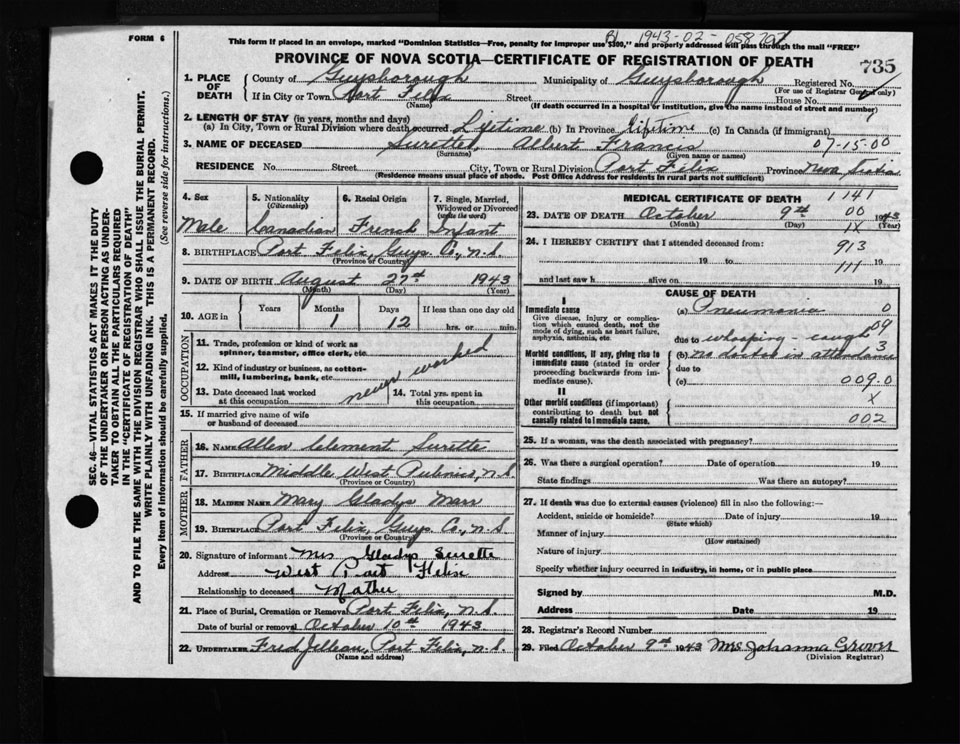 FORM 6
B1 1943-02-058707
This form if placed in an envelope, marked "Dominion Statistics—Free, penalty for improper use $300," and properly addressed will pass through the mail "FREE"
PROVINCE OF NOVA SCOTIA—CERTIFICATE OF REGISTRATION OF DEATH
735
1. PLACE OF DEATH County of Guysborough Municipality of Guysborough Registered No.
(For use of Registrar General only)
If in City or Town Port Felix Street House No.
(Name) (If death occurred in a hospital or institution, give the name instead of street and number)
2. LENGTH OF STAY (in years, months and days)
(a) In City, Town or Rural Division where death occurred Lifetime (b) In Province Lifetime (c) In Canada (if immigrant)
3. NAME OF DECEASED Surette, Albert Francis 07-15-00
(Surname) (Given name or names)
RESIDENCE No. Street City, Town or Rural Division Port Felix Province Nova Scotia
(Residence means usual place of abode. Post Office Address for residents in rural parts not sufficient)
4. Sex 5. Nationality (Citizenship) 6. Racial Origin 7. Single, Married, Widowed or Divorced (write the word)
Male Canadian French Infant
8. BIRTHPLACE Port Felix, Guys. Co., N.S.
(Province or Country)
9. DATE OF BIRTH August 27th 1943
(Month) (Day) (Year)
10. AGE in Years Months Days If less than one day old
1 12 hrs. or min.
OCCUPATION
11. Trade, profession or kind of work as spinner, teamster, office clerk, etc.
12. Kind of industry or business, as cotton-mill, lumbering, bank, etc.
never worked
13. Date deceased last worked at this occupation 14. Total yrs. spent in this occupation
15. If married give name of wife or husband of deceased
FATHER
16. NAME Allen Clement Surette
17. BIRTHPLACE Middle West Pubnico, N.S.
(Province or Country)
MOTHER
18. MAIDEN NAME Mary Gladys Marr
19. BIRTHPLACE Port Felix, Guys Co., N.S.
(Province or Country)
20. Signature of informant Mrs Gladys Surette
Address West Port Felix
Relationship to deceased Mother
21. Place of Burial, Cremation or Removal Port Felix, N.S.
Date of burial or removal October 10th 1943.
22. UNDERTAKER Fred Port Felix, N.S.
(Name and address)
MEDICAL CERTIFICATE OF DEATH 1 141
23. DATE OF DEATH October 9th 00 1943
(Month) (Day) IX (Year)
24. I HEREBY CERTIFY that I attended deceased from:
913
19 to 19
111
and last saw h alive on 19
CAUSE OF DEATH
I
Immediate cause
Give disease, injury or complication which caused death, not the mode of dying, such as heart failure, asphyxia, asthenia, etc.
(a) Pneumonia 0
09
due to whooping-cough
3
Morbid conditions, if any, giving rise to immediate cause (stated in order proceeding backwards from immediate cause).
(b) no doctor in attendance
due to
(c) 009.0
II
Other morbid conditions (if important) contributing to death but not causally related to immediate cause.
X
002
25. If a woman, was the death associated with pregnancy?
26. Was there a surgical operation? Date of operation 19
State findings Was there an autopsy?
27. If death was due to external causes (violence) fill in also the following:—
Accident, suicide or homicide? Date of injury 19
(State which)
Manner of injury
(How sustained)
Nature of injury
Specify whether injury occurred in industry, in home, or in public place
Signed by M.D.
Address Date 19
28. Registrar's Record Number
29. Filed October 9th 1943 Mrs Johanna
(Division Registrar)
SEC. 46—VITAL STATISTICS ACT MAKES IT THE DUTY
OF THE UNDERTAKER OR PERSON ACTING AS UNDER-
TAKER TO OBTAIN ALL THE PARTICULARS REQUIRED
IN THE "CERTIFICATE OF REGISTRATION OF DEATH"
AND TO FILE THE SAME WITH THE DIVISION REGISTRAR WHO SHALL ISSUE THE BURIAL PERMIT.
WRITE PLAINLY WITH UNFADING INK. THIS IS A PERMANENT RECORD.
Every item of information should be carefully supplied. (See reverse side for instructions.)